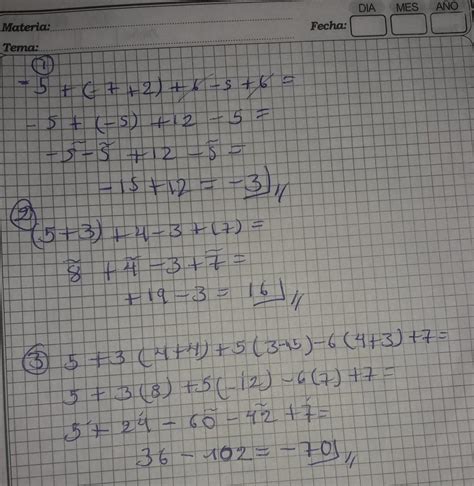 DIA MES AÑO
Materia: Fecha:
Tema:
①
-5 + (-7+2) + 6 - 5 + 6 =
-5 + (-5) + 12 - 5 =
-5 - 5 + 12 - 5 =
-15 + 12 = -3
②
(5+3) + 4 - 3 + (7) =
8 + 4 - 3 + 7 =
+19 - 3 = 16
③ 5 + 3 (4+4) + 5 (3-15) - 6 (4+3) + 7 =
5 + 3(8) + 5(-12) - 6(7) + 7 =
5 + 24 - 60 - 42 + 7 =
36 - 102 = -70